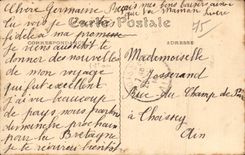 Chère Germaine Reçois mes bons baisers ainsi
que ta Maman
Carte Postale
Tu vois je suis
fidèle à ma promesse
CORRESPONDANCE
ADRESSE
je viens aussitôt te
donner des nouvelles
de mon voyage
qui fut excellent
J'ai vu beaucoup
de pays, nous partons
dimanche prochain
pour la Bretagne
je te récrirai bientôt
75
Mademoiselle
Josserand
Rue du Champ de
à Choissey
Ain